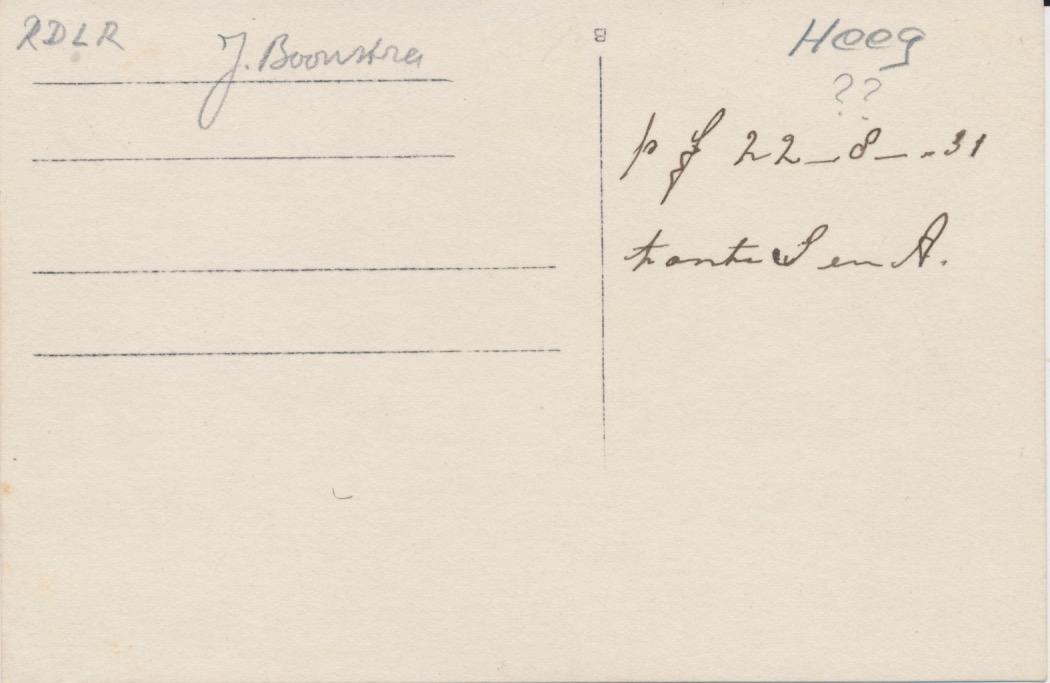 RDLR
J. Boonstra
B
Heeg
??
p f 22-8-31
tante S en A.